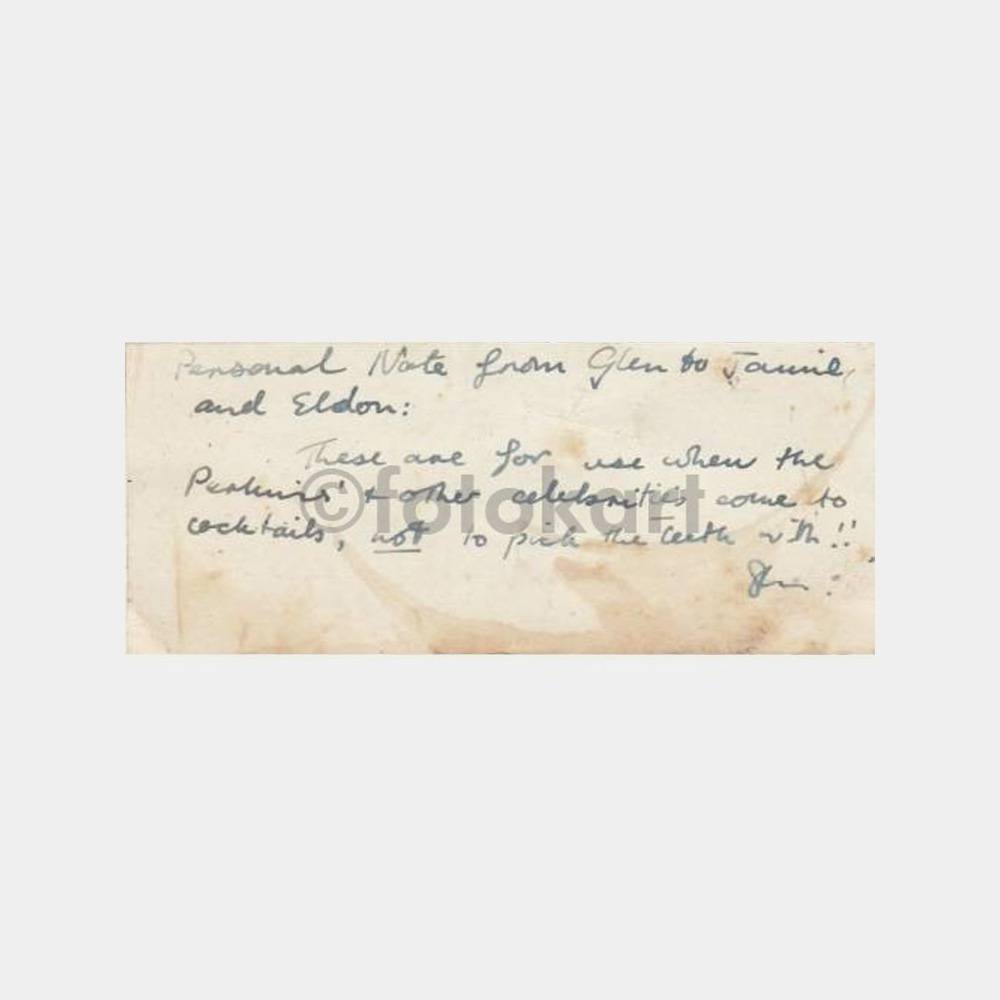 Personal Note from Glen to Jamie,
and Eldon:
These are for use when the
Perkins' & other celebrities come to
cocktails, not to pick the teeth with!!
©fotokart